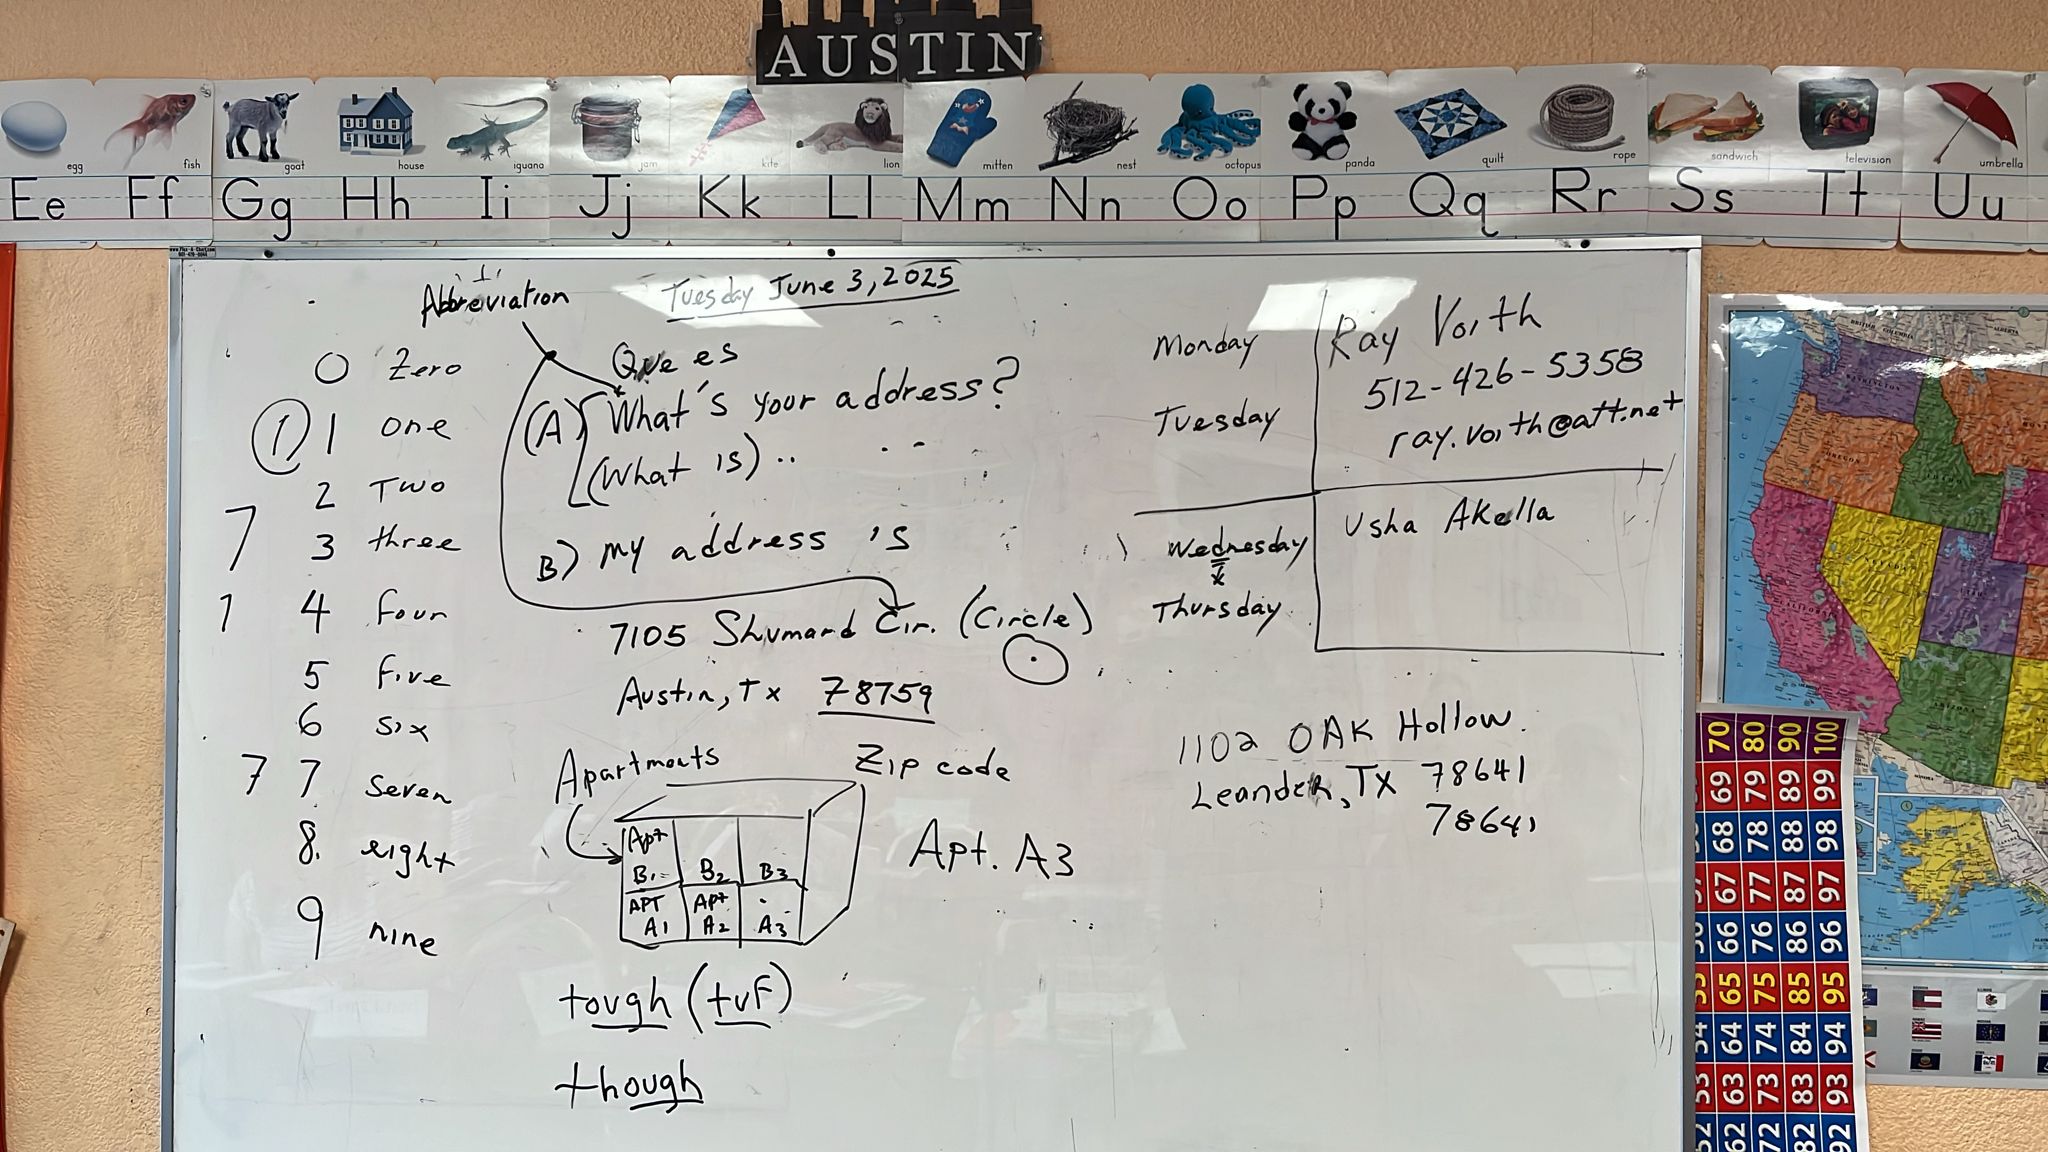 AUSTIN
egg fish goat house iguana jam kite lion mitten nest octopus panda quilt rope sandwich television umbrella
Ee Ff Gg Hh Ii Jj Kk Ll Mm Nn Oo Pp Qq Rr Ss Tt Uu
Abbreviation
Tuesday June 3, 2025
0 Zero
1 1 one
2 Two
7 3 three
1 4 four
5 five
6 six
7 7 seven
8. eight
9 nine
Que es
(A) What's your address?
(What is) ..
B) my address is
7105 Shumard Cir. (Circle)
Austin, Tx 78759
Apartments
Zip code
Apt
B1 B2 B3
APT Apt
A1 A2 A3
Apt. A3
tough (tuf)
though
Monday
Tuesday
Ray Voith
512-426-5358
ray.voith@att.net
Wednesday
Thursday
Usha Akella
1102 OAK Hollow.
Leander, TX 78641
78641
BRITISH COLUMBIA
ALBERTA
WASHINGTON
OREGON
IDAHO
NEVADA
UTAH
CALIFORNIA
ARIZONA
PACIFIC OCEAN
70 80 90 100
69 79 89 99
68 78 88 98
67 77 87 97
66 76 86 96
65 75 85 95
54 64 74 84 94
53 63 73 83 93
52 62 72 82 92